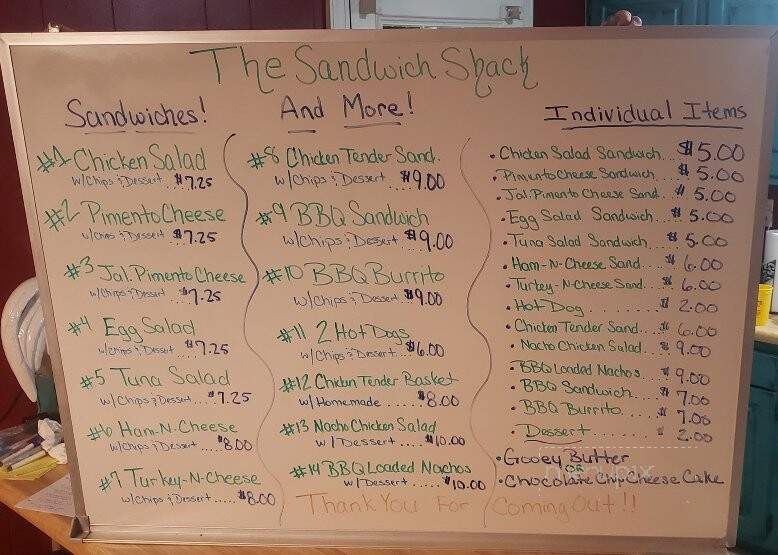 The Sandwich Shack
Sandwiches!
#1 Chicken Salad
w/Chips & Dessert. $7.25
#2 Pimento Cheese
w/Chips & Dessert $7.25
#3 Jal. Pimento Cheese
w/Chips & Dessert. $7.25
#4 Egg Salad
w/Chips & Dessert $7.25
#5 Tuna Salad
w/Chips & Dessert.... $7.25
#6 Ham-N-Cheese
w/Chips & Dessert .... $8.00
#7 Turkey-N-Cheese
w/Chips & Dessert .... $8.00
And More!
#8 Chicken Tender Sand.
w/Chips & Dessert. ... $9.00
#9 BBQ Sandwich
w/Chips & Dessert .. $9.00
#10 BBQ Burrito
w/Chips & Dessert.. $9.00
#11 2 Hot Dogs
w/Chips & Dessert... $6.00
#12 Chicken Tender Basket
w/Homemade ..... $8.00
#13 Nacho Chicken Salad
w/Dessert.... $10.00
#14 BBQ Loaded Nachos
w/Dessert..... $10.00
Individual Items
• Chicken Salad Sandwich... $5.00
• Pimento Cheese Sandwich.. $5.00
• Jal. Pimento Cheese Sand.. $5.00
• Egg Salad Sandwich... $5.00
• Tuna Salad Sandwich.... $5.00
• Ham-N-Cheese Sand.... $6.00
• Turkey-N-Cheese Sand.... $6.00
• Hot Dog ........ $2.00
• Chicken Tender Sand... $6.00
• Nacho Chicken Salad.. $9.00
• BBQ Loaded Nachos.... $9.00
• BBQ Sandwich..... $7.00
• BBQ Burrito..... $7.00
• Dessert ....... $2.00
• Gooey Butter
OR
• Chocolate Chip Cheese Cake
Thank You For Coming Out!!